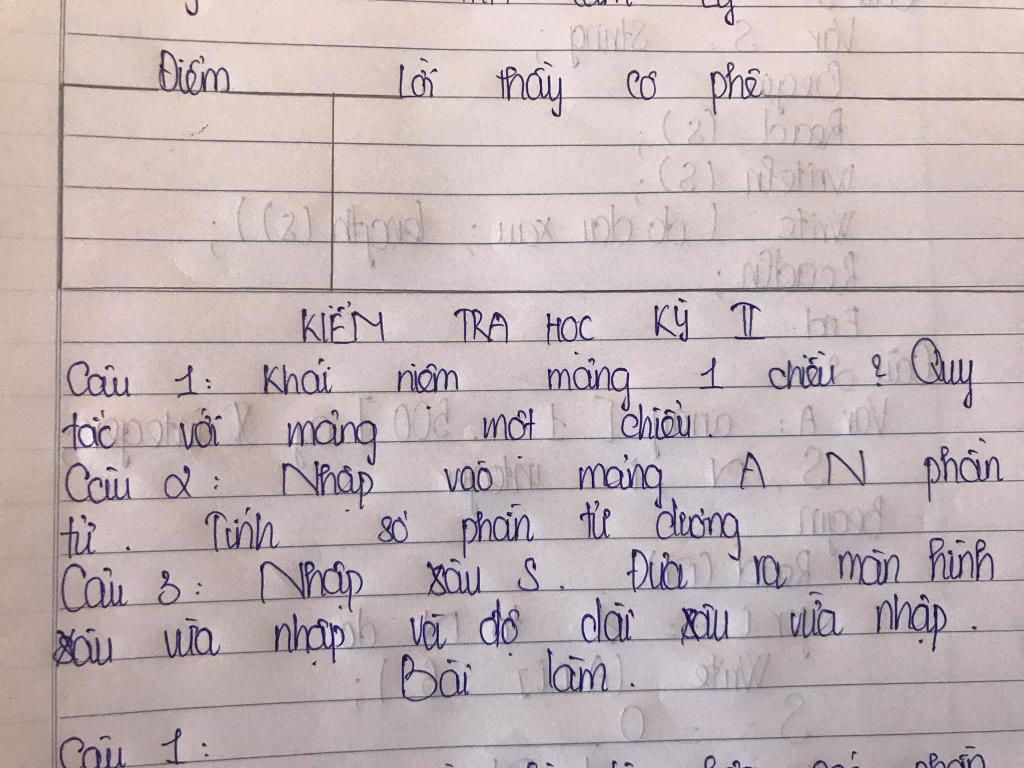 Điểm Lời thầy cô phê
KIỂM TRA HỌC KỲ II
Câu 1: Khái niệm mảng 1 chiều? Quy
tắc với mảng một chiều.
Câu 2: Nhập vào mảng A N phần
tử. Tính số phần tử dương
Câu 3: Nhập xâu S. Đưa ra màn hình
xâu vừa nhập và độ dài xâu vừa nhập.
Bài làm.
Câu 1: